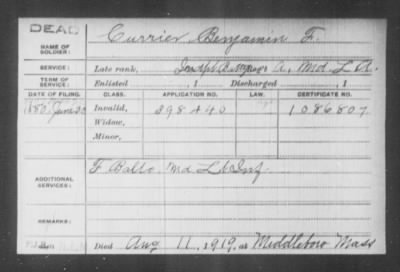 DEAD
NAME OF SOLDIER:
Currier, Benjamin F.
SERVICE:
Late rank, A, Md. L A.
TERM OF SERVICE:
Enlisted , 1 Discharged , 1
DATE OF FILING. CLASS. APPLICATION NO. LAW. CERTIFICATE NO.
Invalid, 398440 1086807
Widow,
Minor,
ADDITIONAL SERVICES:
F Balto. Md Lt Inf.
REMARKS:
Died Aug 11, 1919, at Middleboro Mass